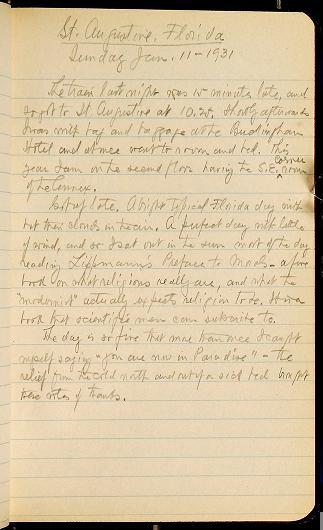 St. Augustine, Florida
Sunday Jan. 11-1931
The train last night was 15 minutes late, and
so got to St Augustine at 10.25. Shortly afterwards
I was with bag and baggage at the Buckingham
Hotel and at once went to room and bed. This
year I am on the second floor having the S.E. corner room
of the annex.
Got up late. A bright typical Florida day with
but thin clouds in the air. A perfect day with little
of wind, and so I sat out in the sun most of the day
reading Lippmann's Preface to Morals - a fine
book on what religions really are, and what the
"modernist" actually expects religion to be. It is a
book that scientific men can subscribe to.
The day is so fine that more than once I caught
myself saying "you are now in Paradise" - the
relief from the cold north and out of a sick bed brought
these notes of thanks.